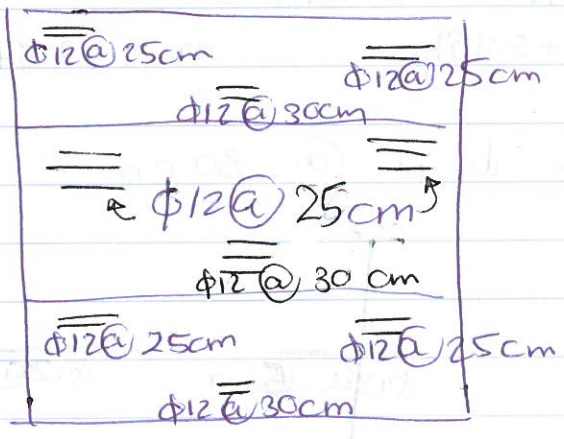 ϕ12@25cm
ϕ12@25cm
ϕ12@30cm
ϕ12@25cm
ϕ12@30cm
ϕ12@25cm
ϕ12@25cm
ϕ12@30cm